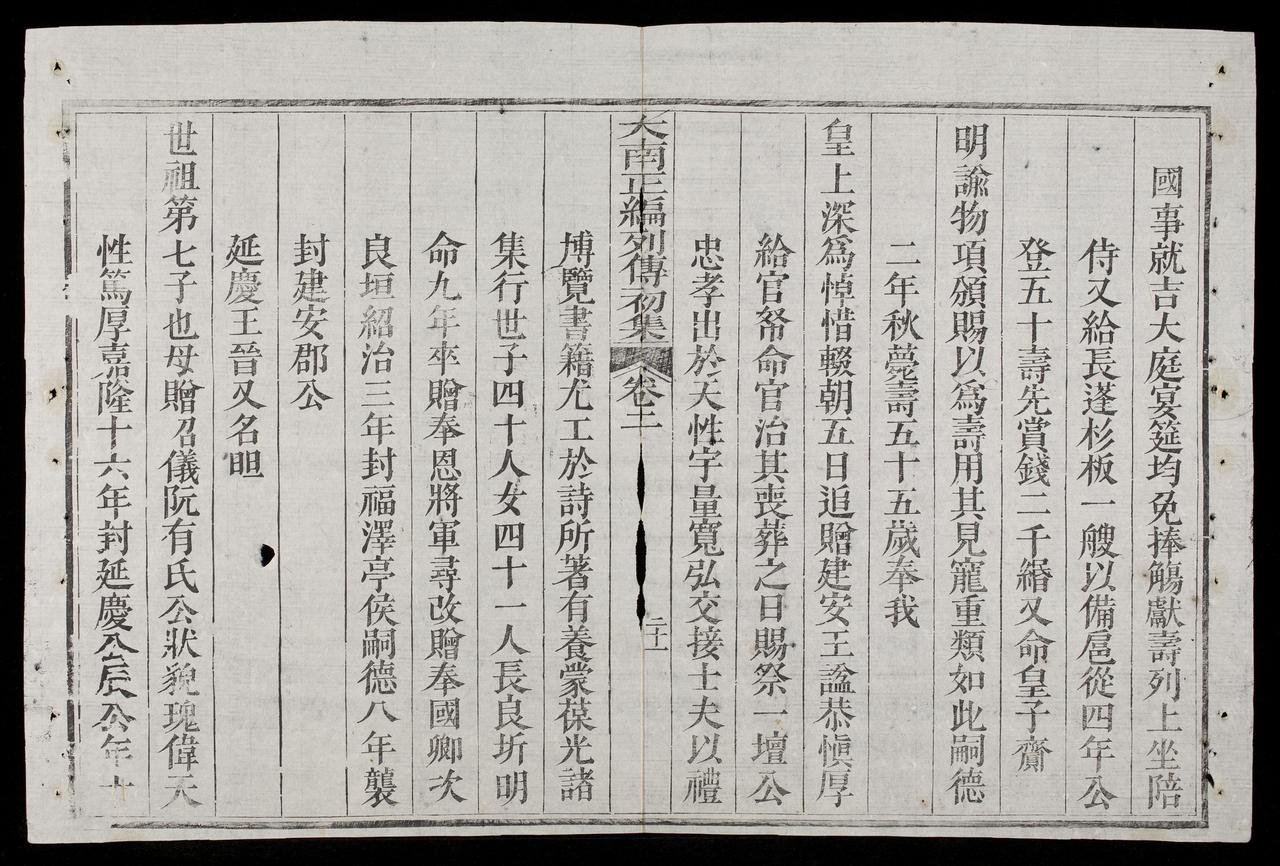 國事就吉大庭宴筵均免捧觴獻壽列上坐陪
侍又給長蓬杉板一艘以備扈從四年公
登五十壽先賞錢二千緡又命皇子齎
明諭物項頒賜以爲壽用其見寵重類如此嗣德
二年秋薨壽五十五歲奉我
皇上深爲悼惜輟朝五日追贈建安王諡恭愼厚
給官帑命官治其喪葬之日賜祭一壇公
忠孝出於天性宇量寬弘交接士夫以禮
大南正編列傳初集 卷二 二十一
博覽書籍尤工於詩所著有養蒙葆光諸
集行世子四十人女四十一人長良圻明
命九年卒贈奉恩將軍尋改贈奉國卿次
良垣紹治三年封福澤亭侯嗣德八年襲
封建安郡公
延慶王晉又名𣅵
世祖第七子也母贈召儀阮有氏公狀貌瑰偉天
性篤厚嘉隆十六年封延慶公辰公年十